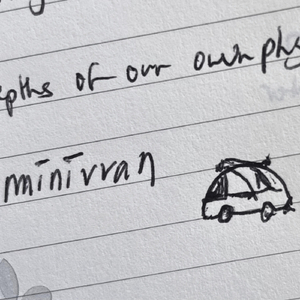 epths of our own phy
minivan